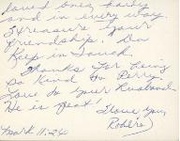 loved ones, handy
and in every way
I treasure your
friendship. 
Keep in touch.
Thanks for being
so kind to Perry.
Love to your husband.
He is great!
I love you,
Roberta
March 11,